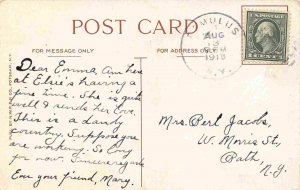 POST CARD
FOR MESSAGE ONLY
FOR ADDRESS ONLY
ROMULUS
AUG
13
PM
1918
N.Y.
Dear Emma, Am here
at Elsie's having a
fine time. She is quite
well & sends her love.
This is a dandy
country. Suppose you
are working. So long
for now. Sincere regards
Ever your friend, Mary.
Mrs. Pert Jacobs,
W. Morris St.,
Bath,
N.Y.